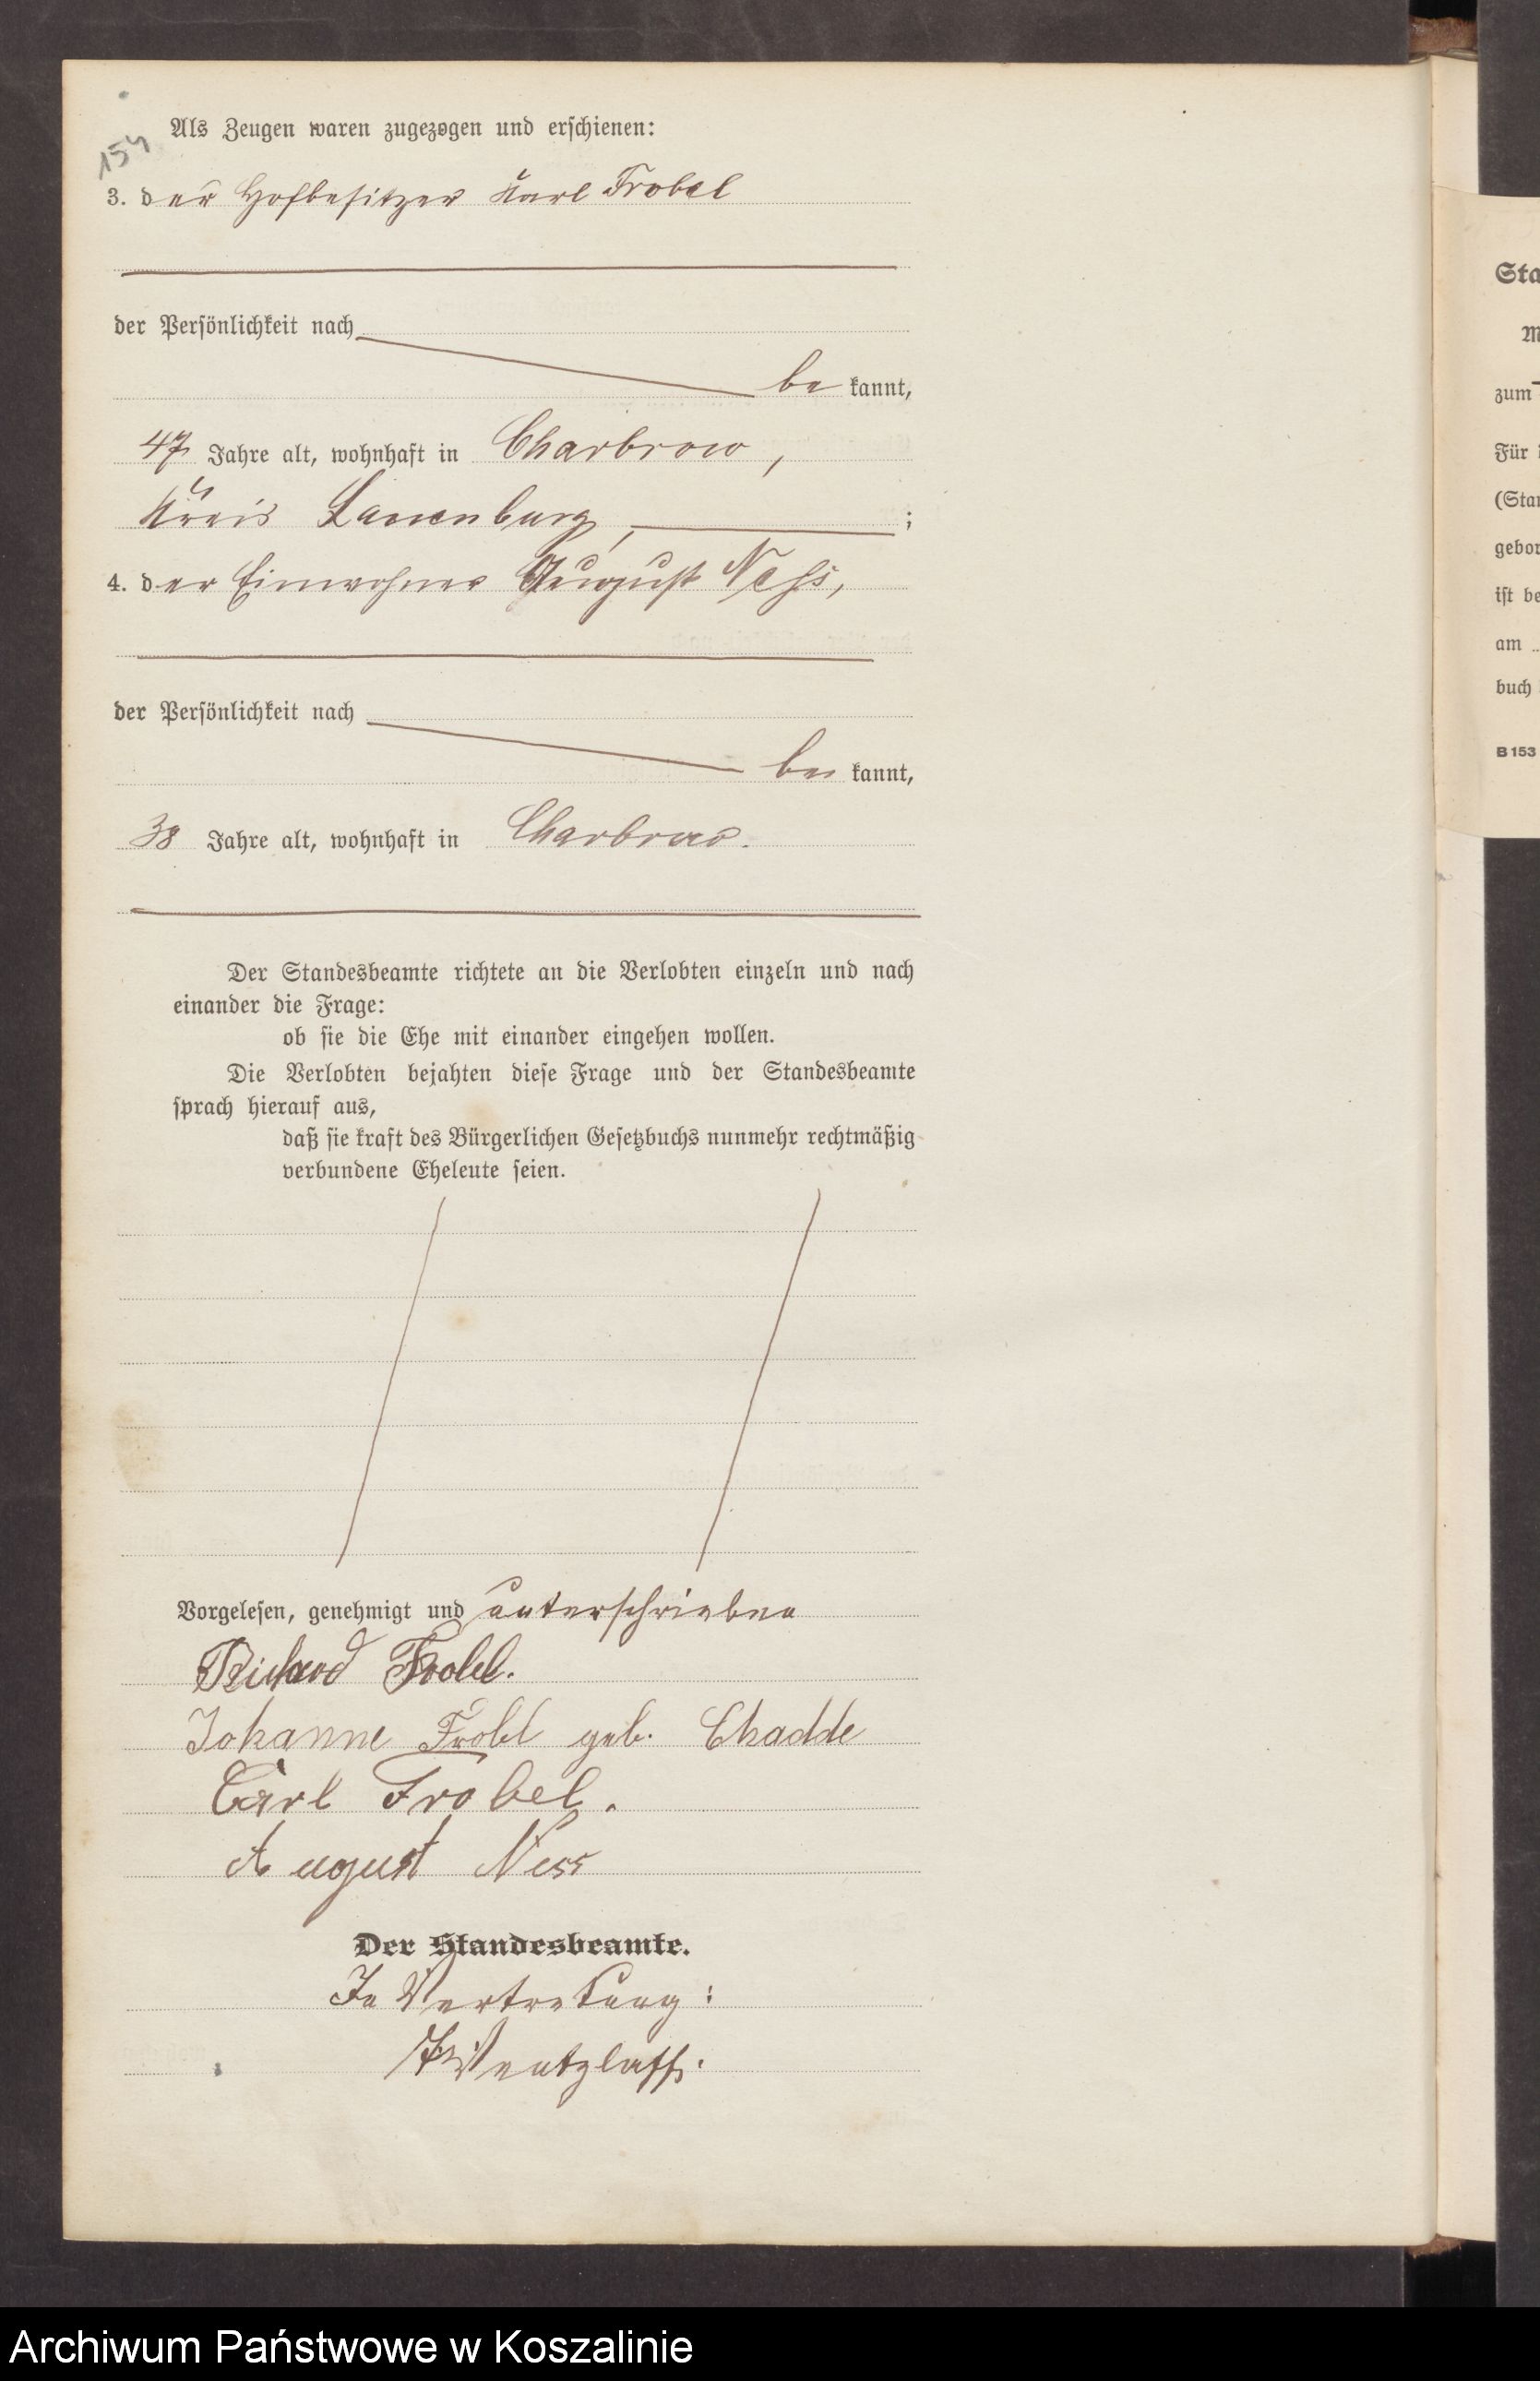 154
Als Zeugen waren zugezogen und erschienen:
3. der Hofbesitzer Karl Frobel
der Persönlichkeit nach
be kannt,
47 Jahre alt, wohnhaft in Charbrow,
Kreis Lauenburg, ;
4. der Einwohner August Neſs,
der Persönlichkeit nach
be kannt,
38 Jahre alt, wohnhaft in Charbrow.
Der Standesbeamte richtete an die Verlobten einzeln und nach
einander die Frage:
ob sie die Ehe mit einander eingehen wollen.
Die Verlobten bejahten diese Frage und der Standesbeamte
sprach hierauf aus,
daß sie kraft des Bürgerlichen Gesetzbuchs nunmehr rechtmäßig
verbundene Eheleute seien.
Vorgelesen, genehmigt und unterschrieben
Richard Frobel.
Johanne Frobel geb. Chadde
Carl Frobel.
August Ness
Der Standesbeamte.
In Vertretung:
Wentzlaff.
Sta
M
zum
Für i
(Sta
gebor
ist be
am
buch
B 153
Archiwum Państwowe w Koszalinie